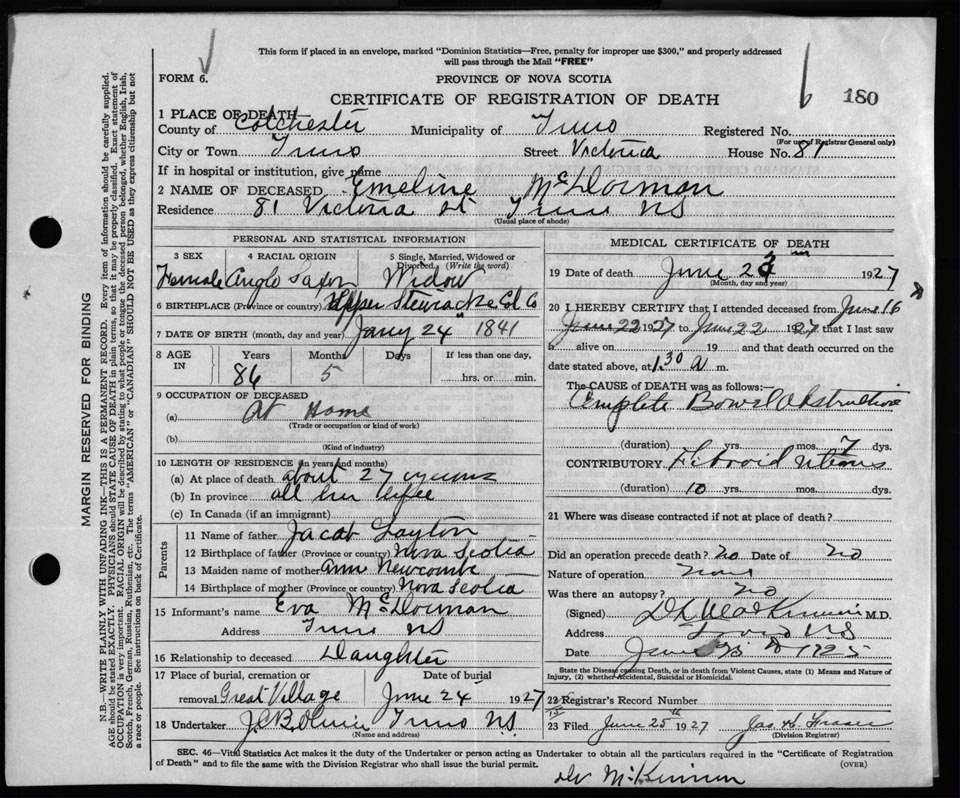 This form if placed in an envelope, marked "Dominion Statistics—Free, penalty for improper use $300," and properly addressed
will pass through the Mail "FREE"
FORM 6.
PROVINCE OF NOVA SCOTIA
CERTIFICATE OF REGISTRATION OF DEATH
180
1 PLACE OF DEATH
County of Colchester Municipality of Truro Registered No.
(For use of Registrar General only)
City or Town Truro Street Victoria House No. 81
If in hospital or institution, give name
2 NAME OF DECEASED Emeline McDorman
Residence 81 Victoria St Truro NS
(Usual place of abode)
PERSONAL AND STATISTICAL INFORMATION
3 SEX 4 RACIAL ORIGIN 5 Single, Married, Widowed or
Divorced (Write the word)
Female Anglo Saxon Widow
6 BIRTHPLACE (Province or country) Upper Stewiacke Col Co
7 DATE OF BIRTH (month, day and year) Jany 24" 1841
8 AGE IN Years Months Days If less than one day,
86 5 hrs. or min.
9 OCCUPATION OF DECEASED
(a) At Home
(Trade or occupation or kind of work)
(b)
(Kind of industry)
10 LENGTH OF RESIDENCE (in years and months)
(a) At place of death about 27 years
(b) In province all her life
(c) In Canada (if an immigrant)
Parents
11 Name of father Jacob Layton
12 Birthplace of father (Province or country) Nova Scotia
13 Maiden name of mother Ann Newcombe
14 Birthplace of mother (Province or country) Nova Scotia
15 Informant's name Eva McDorman
Address Truro NS
16 Relationship to deceased Daughter
17 Place of burial, cremation or Date of burial
removal Great Village June 24 1927
18 Undertaker Truro N.S.
(Name and address)
MEDICAL CERTIFICATE OF DEATH
19 Date of death June 1927
(Month, day and year)
20 I HEREBY CERTIFY that I attended deceased from June 16
June 22 1927 to June 22 1927 that I last saw
h alive on 19 and that death occurred on
date stated above, at 1.30 A m.
The CAUSE OF DEATH was as follows:
Complete Bowel Obstruction
(duration) yrs. mos. 7 dys.
CONTRIBUTORY Fibroid Uterus
(duration) 10 yrs. mos. dys.
21 Where was disease contracted if not at place of death?
Did an operation precede death? no Date of no
Nature of operation none
Was there an autopsy? no
(Signed) M.D.
Address Truro NS
Date June
State the Disease causing Death, or in death from Violent Causes, state (1) Means and Nature of
Injury, (2) whether Accidental, Suicidal or Homicidal.
22 Registrar's Record Number
23 Filed June 25th 1927 Jas. H. Fraser
(Division Registrar)
SEC. 46—Vital Statistics Act makes it the duty of the Undertaker or person acting as Undertaker to obtain all the particulars required in the "Certificate of Registration
of Death" and to file the same with the Division Registrar who shall issue the burial permit.
(OVER)
Dr McKinnon
MARGIN RESERVED FOR BINDING
N.B.—WRITE PLAINLY WITH UNFADING INK—THIS IS A PERMANENT RECORD. Every item of information should be carefully supplied.
AGE should be stated EXACTLY. PHYSICIANS should STATE CAUSE OF DEATH in plain terms, so that it may be properly classified. Exact statement of
OCCUPATION is very important. RACIAL ORIGIN will be described by stating to what people or tongue the deceased person belonged, whether English, Irish,
Scotch, French, German, Russian, Ruthenian, etc. The terms "AMERICAN" or "CANADIAN" SHOULD NOT BE USED as they express citizenship but not
a race or people. See instructions on back of Certificate.